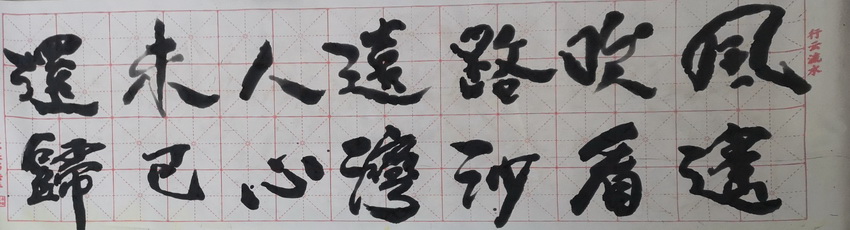 行云流水
風吹路遠人未還
看沙灣心已歸